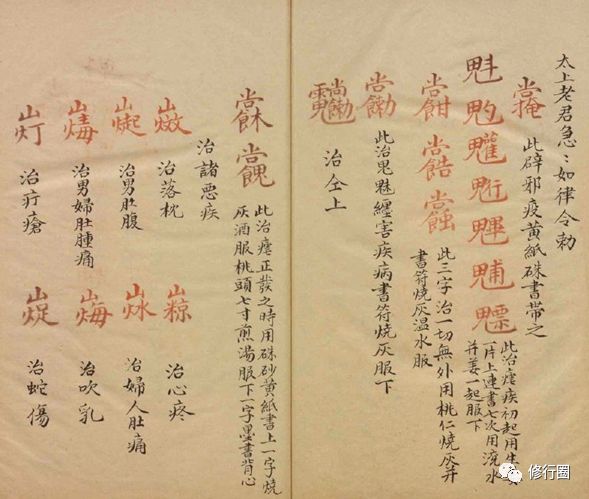 太上老君急〻如律令勅
此辟邪疫黄紙硃書帶之
魁 魓 魒
此治瘧疾初起用生姜
一片上連書七次用流水
并姜一起服下
此三字治一切無外用桃仁燒灰并
書符燒灰温水服
此治鬼魅纏害疾病書符燒灰服下
治仝上
此治瘧正發之時用硃砂黄紙書上一字燒
灰酒服桃頭七寸煎湯服下一字墨書背心
治諸惡疾
治落枕
治心疼
治男肚腹
治婦人肚痛
治男婦肚腫痛
治吹乳
治疔瘡
治蛇傷
修行圈